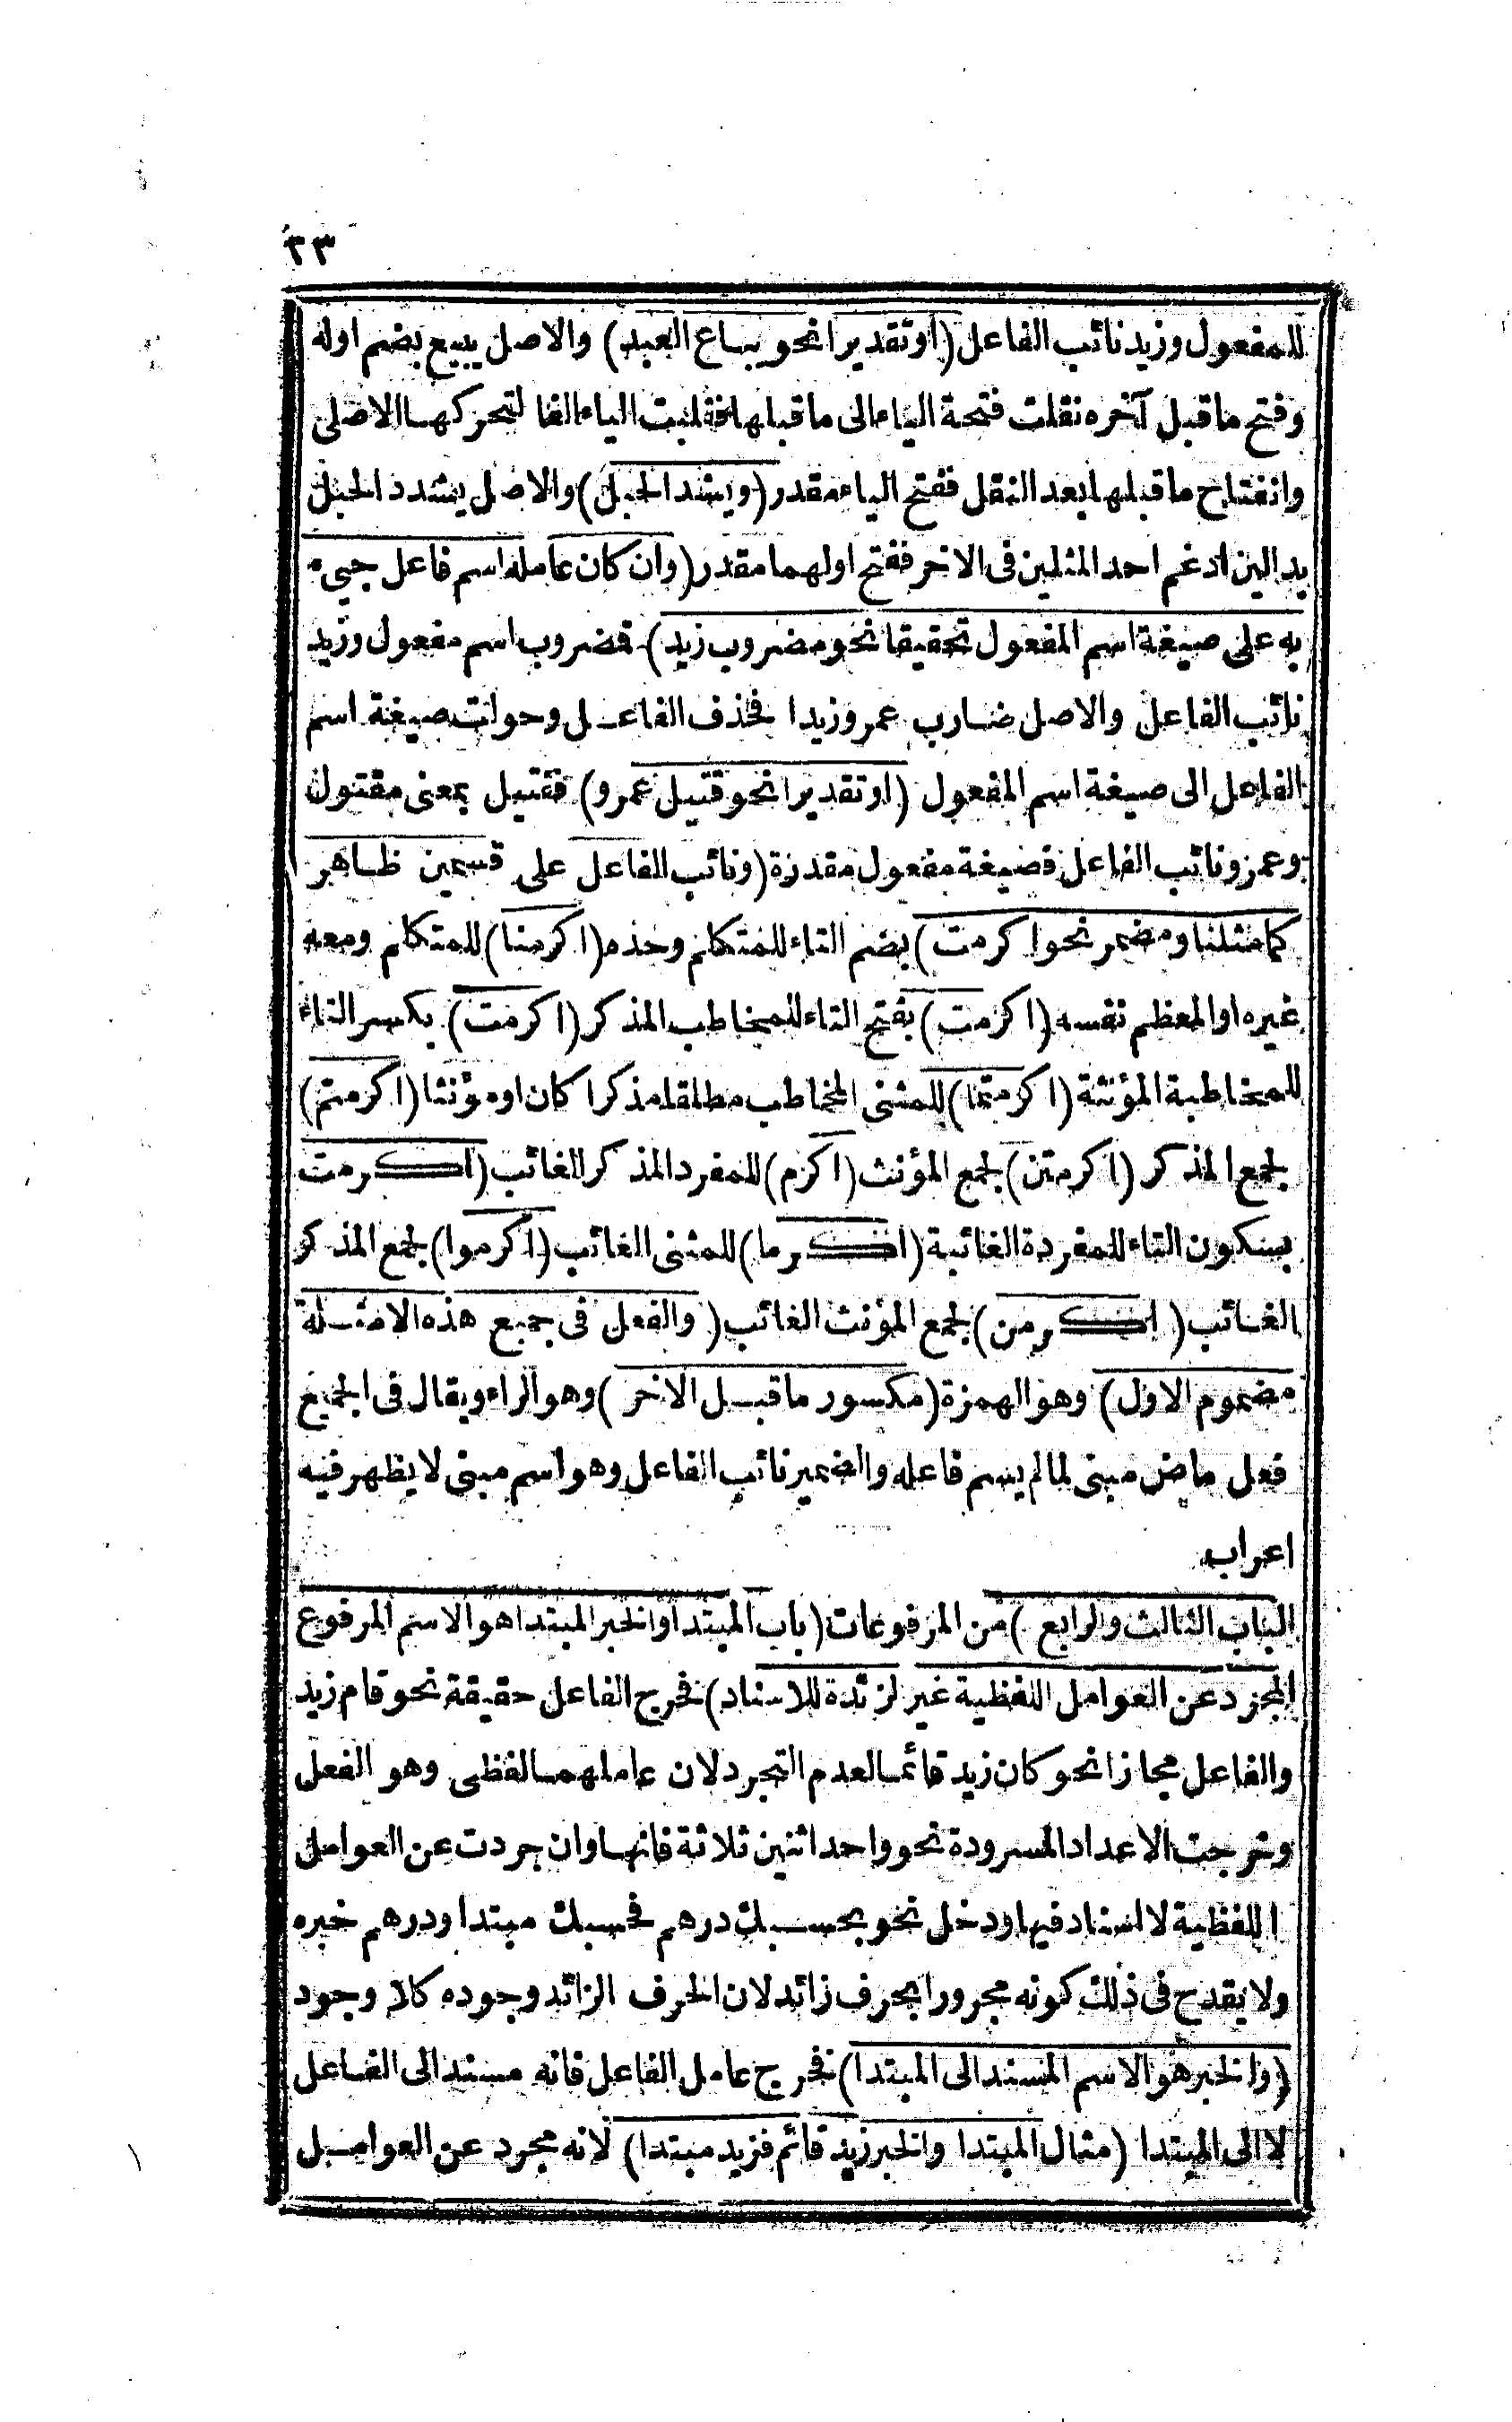 ٣٣
للمفعول وزيد نائب الفاعل (او تقديرا نحو يباع العبد) والاصل يبيع بضم اوله
وفتح ما قبل آخره نقلت فتحة الياء الى ما قبلها فقلبت الياء الفا لتحركها الاصلى
وانفتاح ما قبلها بعد النقل ففتح الياء مقدر (ويشد الحبل) والاصل يشدد الحبل
بدالين ادغم احد المثلين فى الاخر ففتح اولهما مقدر (وان كان عامله اسم فاعل جىء
به على صيغة اسم المفعول تحقيقا نحو مضروب زيد) فضروب اسم مفعول وزيد
نائب الفاعل والاصل ضارب عمر وزيدا فحذف الفاعل وحولت صيغة اسم
الفاعل الى صيغة اسم المفعول (او تقديرا نحو قتيل عمرو) فقتيل بمعنى مقتول
وعمرو نائب الفاعل فصيغة مفعول مقدرة (ونائب الفاعل على قسمين ظاهر
كما مثلنا ومضمر نحو اكرمت) بضم التاء للمتكلم وحده (اكرمنا) للمتكلم ومعه
غيره او المعظم نفسه (اكرمت) بفتح التاء للمخاطب المذكر (اكرمت) بكسر التاء
للمخاطبة المؤنثة (اكرمتما) للمثنى المخاطب مطلقا مذكرا كان او مؤنثا (اكرمتم)
لجمع المذكر (اكرمتن) لجمع المؤنث (اكرم) للمفرد المذكر الغائب (اكرمت
بسكون التاء للمفردة الغائبة (اكرما) للمثنى الغائب (اكرموا) لجمع المذكر
الغائب (اكرمن) لجمع المؤنث الغائب (والفعل فى جميع هذه الامثلة
مضموم الاول) وهو الهمزة (مكسور ما قبل الاخر) وهو الراء ويقال فى الجميع
فعل ماض مبنى لما لم يسم فاعله والضمير نائب الفاعل وهو اسم مبنى لا يظهر فيه
اعراب
الباب الثالث والرابع) من المرفوعات (باب المبتدا والخبر المبتدا هو الاسم المرفوع
المجرد عن العوامل اللفظية غير الزئدة للاسناد) فخرج الفاعل حقيقة نحو قام زيد
والفاعل مجازا نحو كان زيد قائما لعدم التجرد لان عاملهما لفظى وهو الفعل
وخرجت الاعداد المسرودة نحو واحد اثنين ثلاثة فانها وان جردت عن العوامل
اللفظية لا اسناد فيها ودخل نحو بحسبك درهم فحسبك مبتدا ودرهم خبره
ولا يقدح فى ذلك كونه مجرورا بحرف زائد لان الحرف الزائد وجوده كلا وجود
(والخبر هو الاسم المسند الى المبتدا) فخرج عامل الفاعل فانه مسند الى الفاعل
لا الى المبتدا (مثال المبتدا والخبر زيد قائم فزيد مبتدا) لانه مجرد عن العوامل